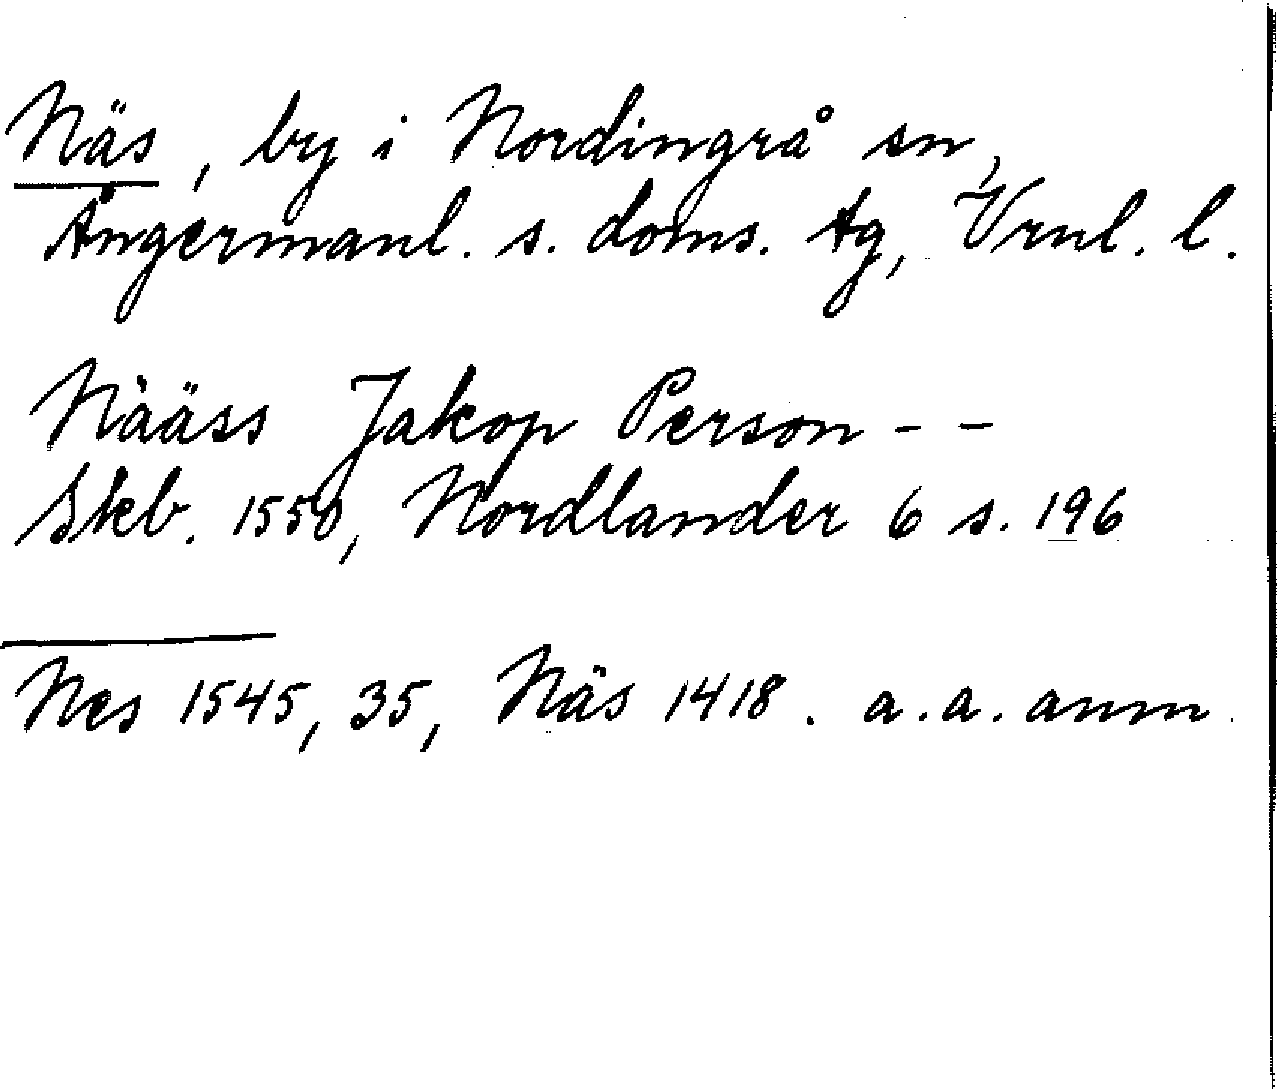 Näs, by i Nordingrå sn,
Ångermanl. s. doms. tg, Vrnl. l.
Nääss Jakop Person - -
Skb. 1550, Nordlander 6 s. 196
Nes 1545, 35, Näs 1418. a.a. anm.